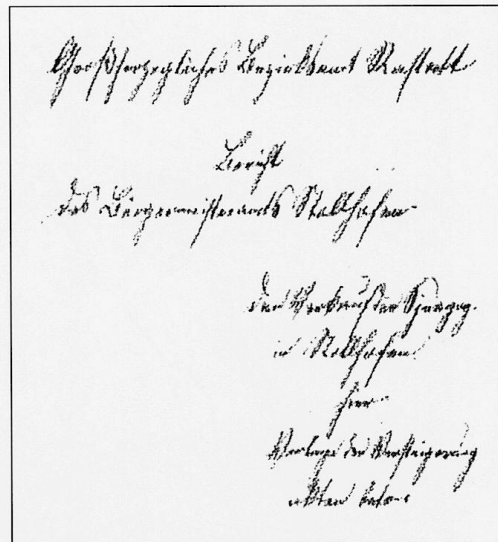 Großherzogliches Bezirksamt Rastatt
Bericht
des Bürgermeisteramts Stollhofen
den Verkauf der Synagog.
in Stollhofen
hier
Vorlage der Versteigerung
akten betr.